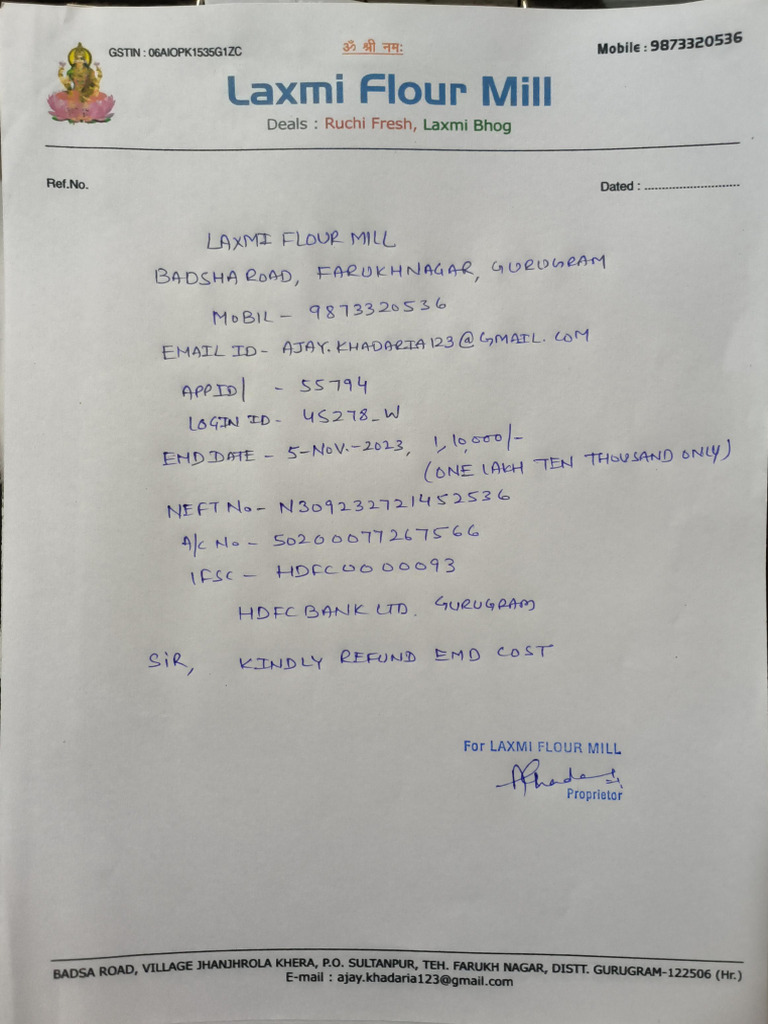 GSTIN : 06AIOPK1535G1ZC
ॐ श्री नमः
Mobile : 9873320536
Laxmi Flour Mill
Deals : Ruchi Fresh, Laxmi Bhog
Ref.No.
Dated : ...........................
LAXMI FLOUR MILL
BADSHA ROAD, FARUKHNAGAR, GURUGRAM
MOBIL - 9873320536
EMAIL ID - AJAY.KHADARIA123@GMAIL.COM
APPID/ - 55794
LOGIN ID - 45278_W
EMD DATE - 5-NOV.-2023, 1,10,000/-
(ONE LAKH TEN THOUSAND ONLY)
NEFT No - N309232721452536
A/C No - 50200077267566
IFSC - HDFC0000093
HDFC BANK LTD. GURUGRAM
SIR, KINDLY REFUND EMD COST
For LAXMI FLOUR MILL
Proprietor
BADSA ROAD, VILLAGE JHANJHROLA KHERA, P.O. SULTANPUR, TEH. FARUKH NAGAR, DISTT. GURUGRAM-122506 (Hr.)
E-mail : ajay.khadaria123@gmail.com